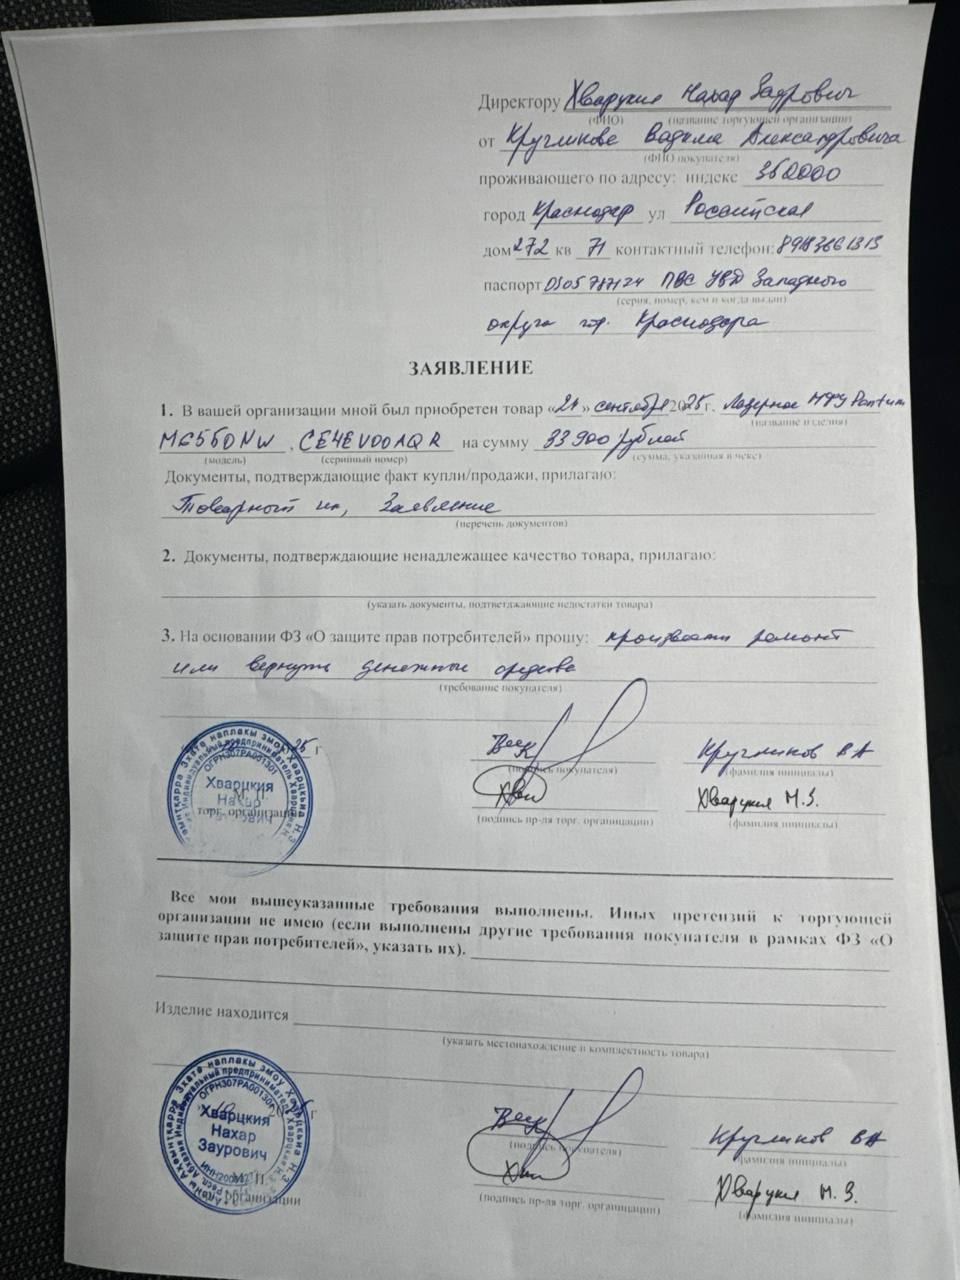 Директору Хварцкия Нахар Заурович
(ФИО) (название торгующей организации)
от Кругликова Вадима Александровича
(ФИО покупателя)
проживающего по адресу: индекс 350000
город Краснодар ул Российская
дом 272 кв 71 контактный телефон:
паспорт ПВС УВД Западного
(серия, номер, кем и когда выдан)
округа гор. Краснодара
ЗАЯВЛЕНИЕ
1. В вашей организации мной был приобретен товар «21» сентября 2025 г. Лазерное МФУ Pantum
(название изделия)
M6550NW, CE4EV00AQR на сумму 33 900 рублей
(модель) (серийный номер) (сумма, указанная в чеке)
Документы, подтверждающие факт купли/продажи, прилагаю:
Товарный чк, Заявление
(перечень документов)
2. Документы, подтверждающие ненадлежащее качество товара, прилагаю:
(указать документы, подтверждающие недостатки товара)
3. На основании ФЗ «О защите прав потребителей» прошу: произвести ремонт
или вернуть денежные средства
(требование покупателя)
25 г
Кругликов ВА
(подпись покупателя) (фамилия инициалы)
Хварцкия
Нахар
М. П.
торг. организации
Хварцкия Н.З.
(подпись пр-ля торг. организации) (фамилия инициалы)
Все мои вышеуказанные требования выполнены. Иных претензий к торгующей
организации не имею (если выполнены другие требования покупателя в рамках ФЗ «О
защите прав потребителей», указать их).
Изделие находится
(указать местонахождение и комплектность товара)
Хварцкия
Нахар
Заурович
М. П.
организации
Кругликов ВА
(подпись покупателя) (фамилия инициалы)
Хварцкия Н.З.
(подпись пр-ля торг. организации) (фамилия инициалы)